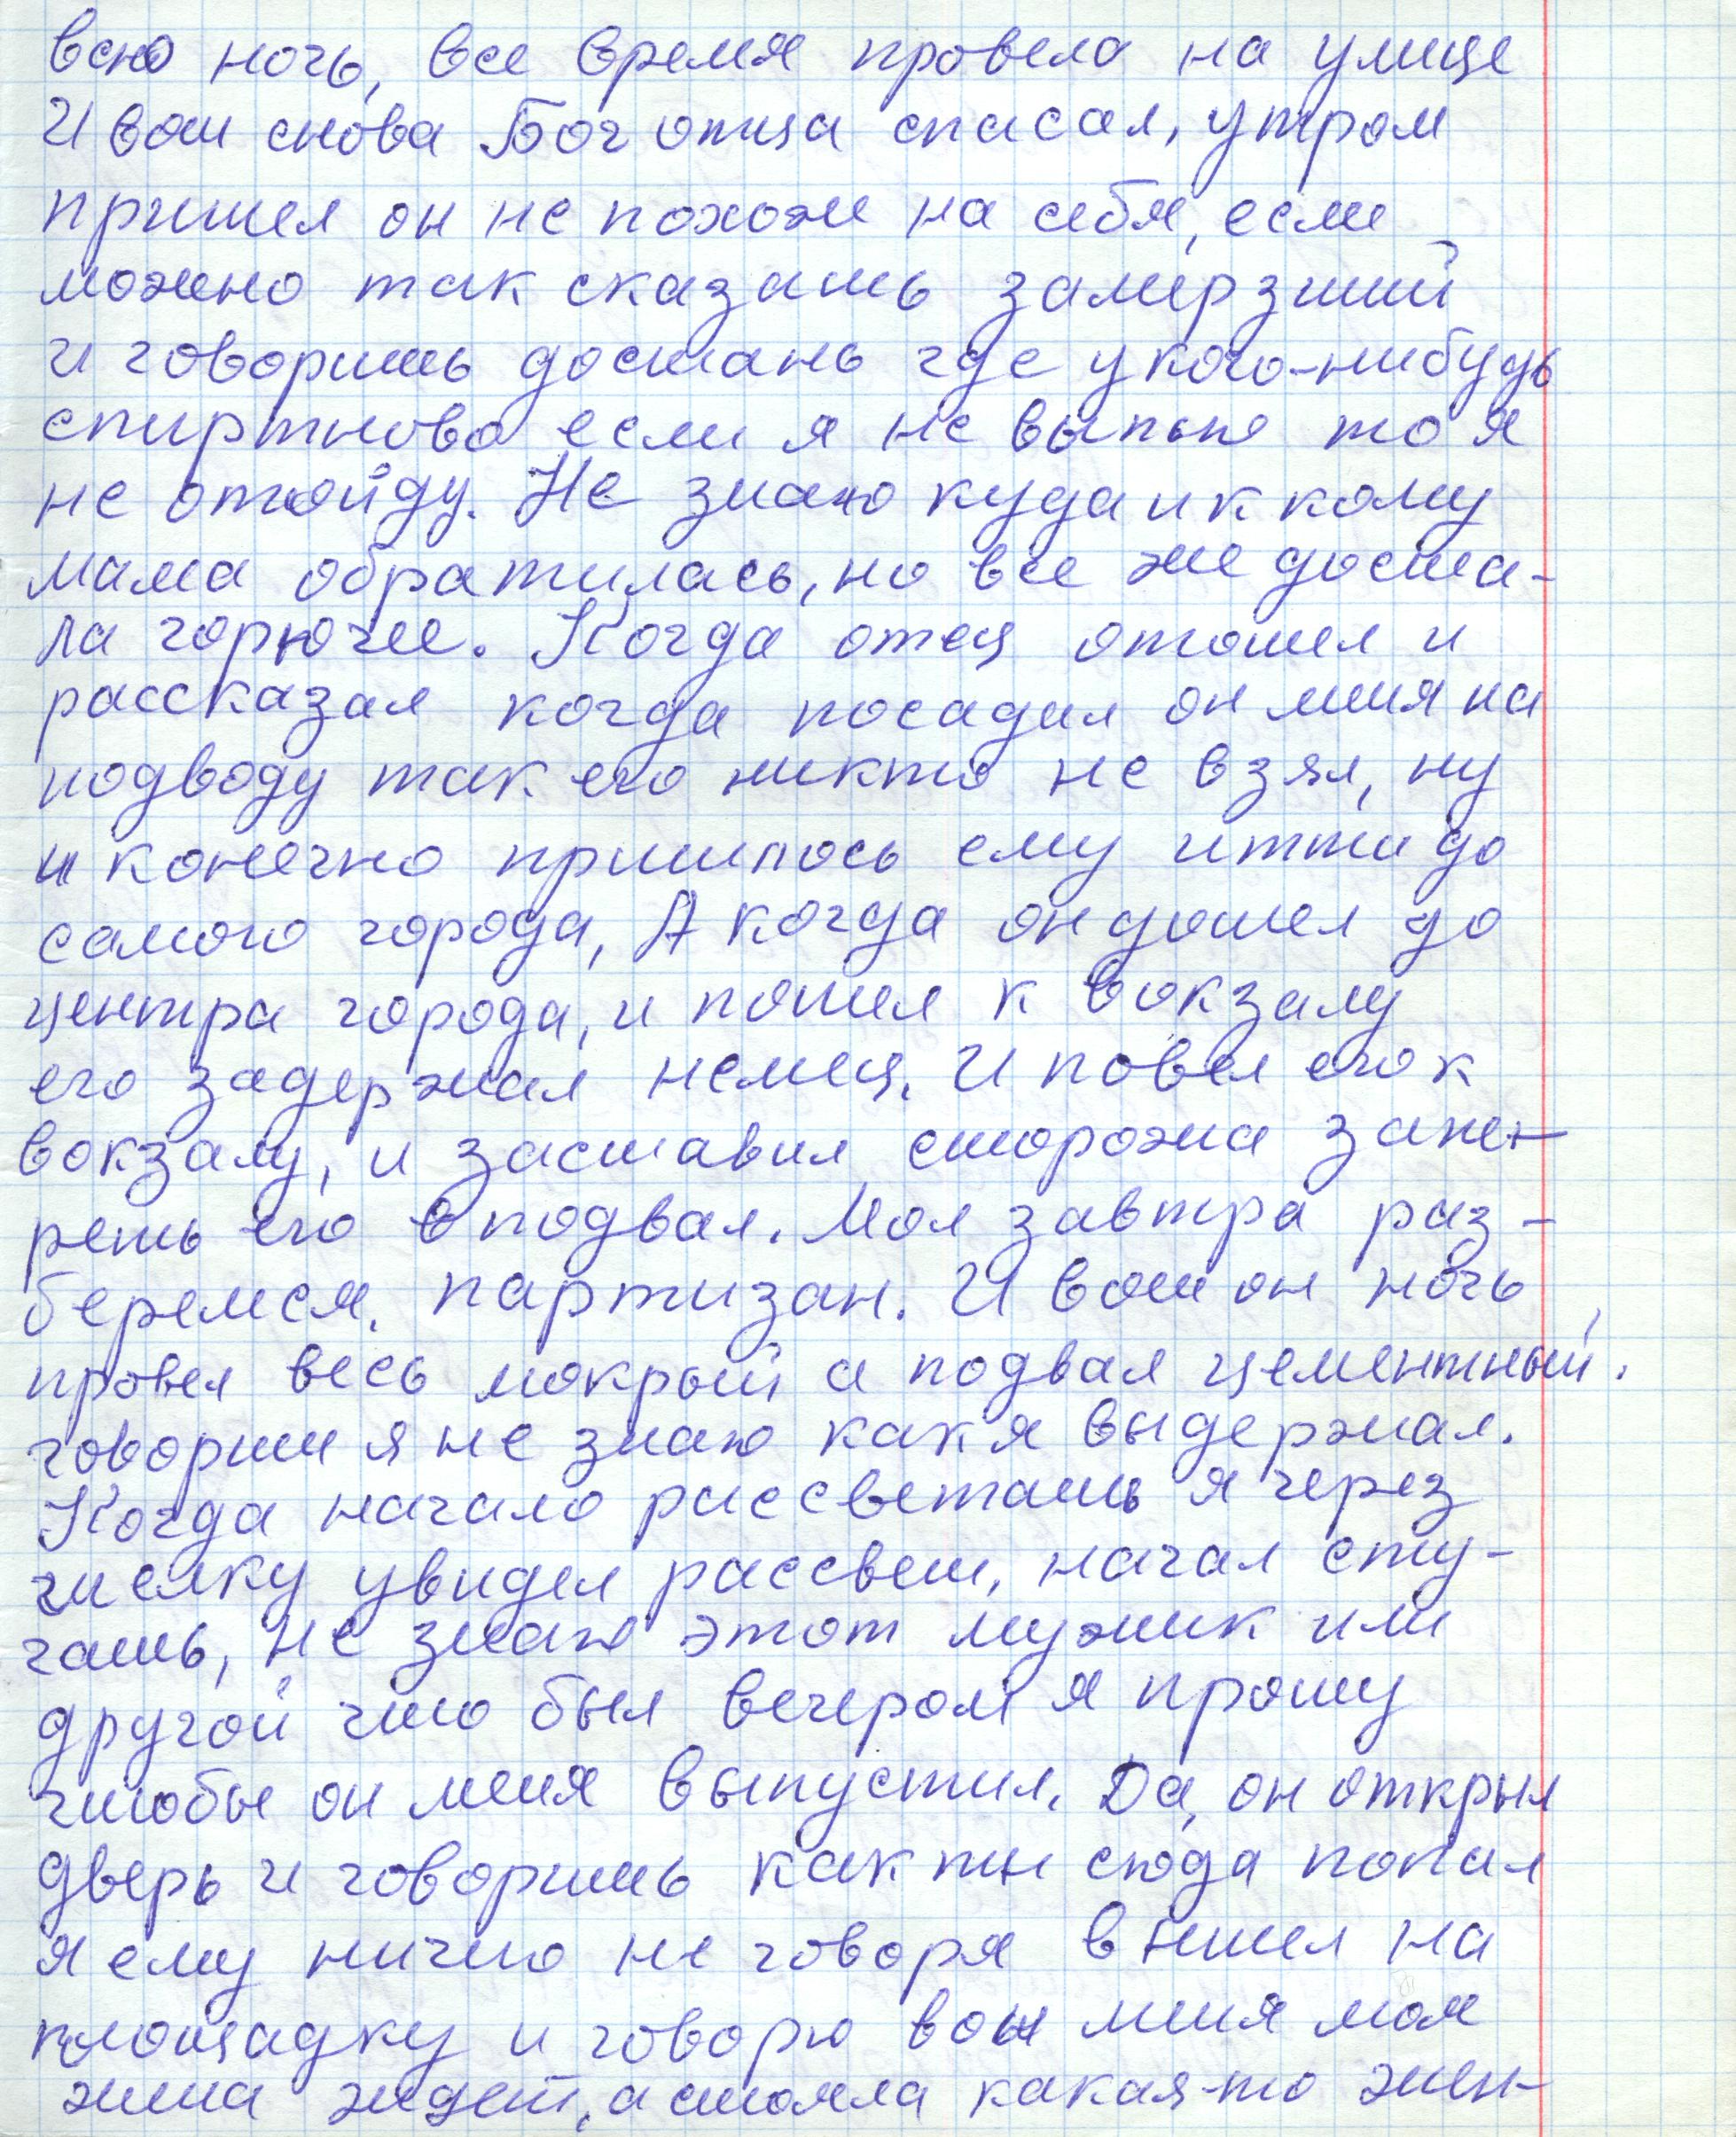 всю ночь, все время провела на улице
И вот снова Бог отца спасал, утром
пришел он не похож на себя, если
можно так сказать замерзший
и говорить достань где у кого-нибудь
спиртново если я не выпью то я
не отойду. Не знаю куда и к кому
мама обратилась, но все же доста-
ла горючее. Когда отец отошел и
рассказал когда посадил он меня на
подводу так его никто не взял, ну
и конечно пришлось ему итти до
самого города, А когда он дошел до
центра города, и пошел к вокзалу
его задержал немец. И повел его к
вокзалу, и заставил сторожа запе-
реть его в подвал. Мол завтра раз-
беремся. партизан. И вот он ночь
провел весь мокрый а подвал цементный.
говорит я не знаю как я выдержал.
Когда начало рассветать я через
щелку увидел рассвет, начал сту-
чать, не знаю этот мужик или
другой что был вечером я прошу
чтобы он меня выпустил. Да, он открыл
дверь и говорить как ты сюда попал
я ему ничего не говоря вышел на
площадку и говорю вон меня моя
жена ждет, а стояла какая-то жен-